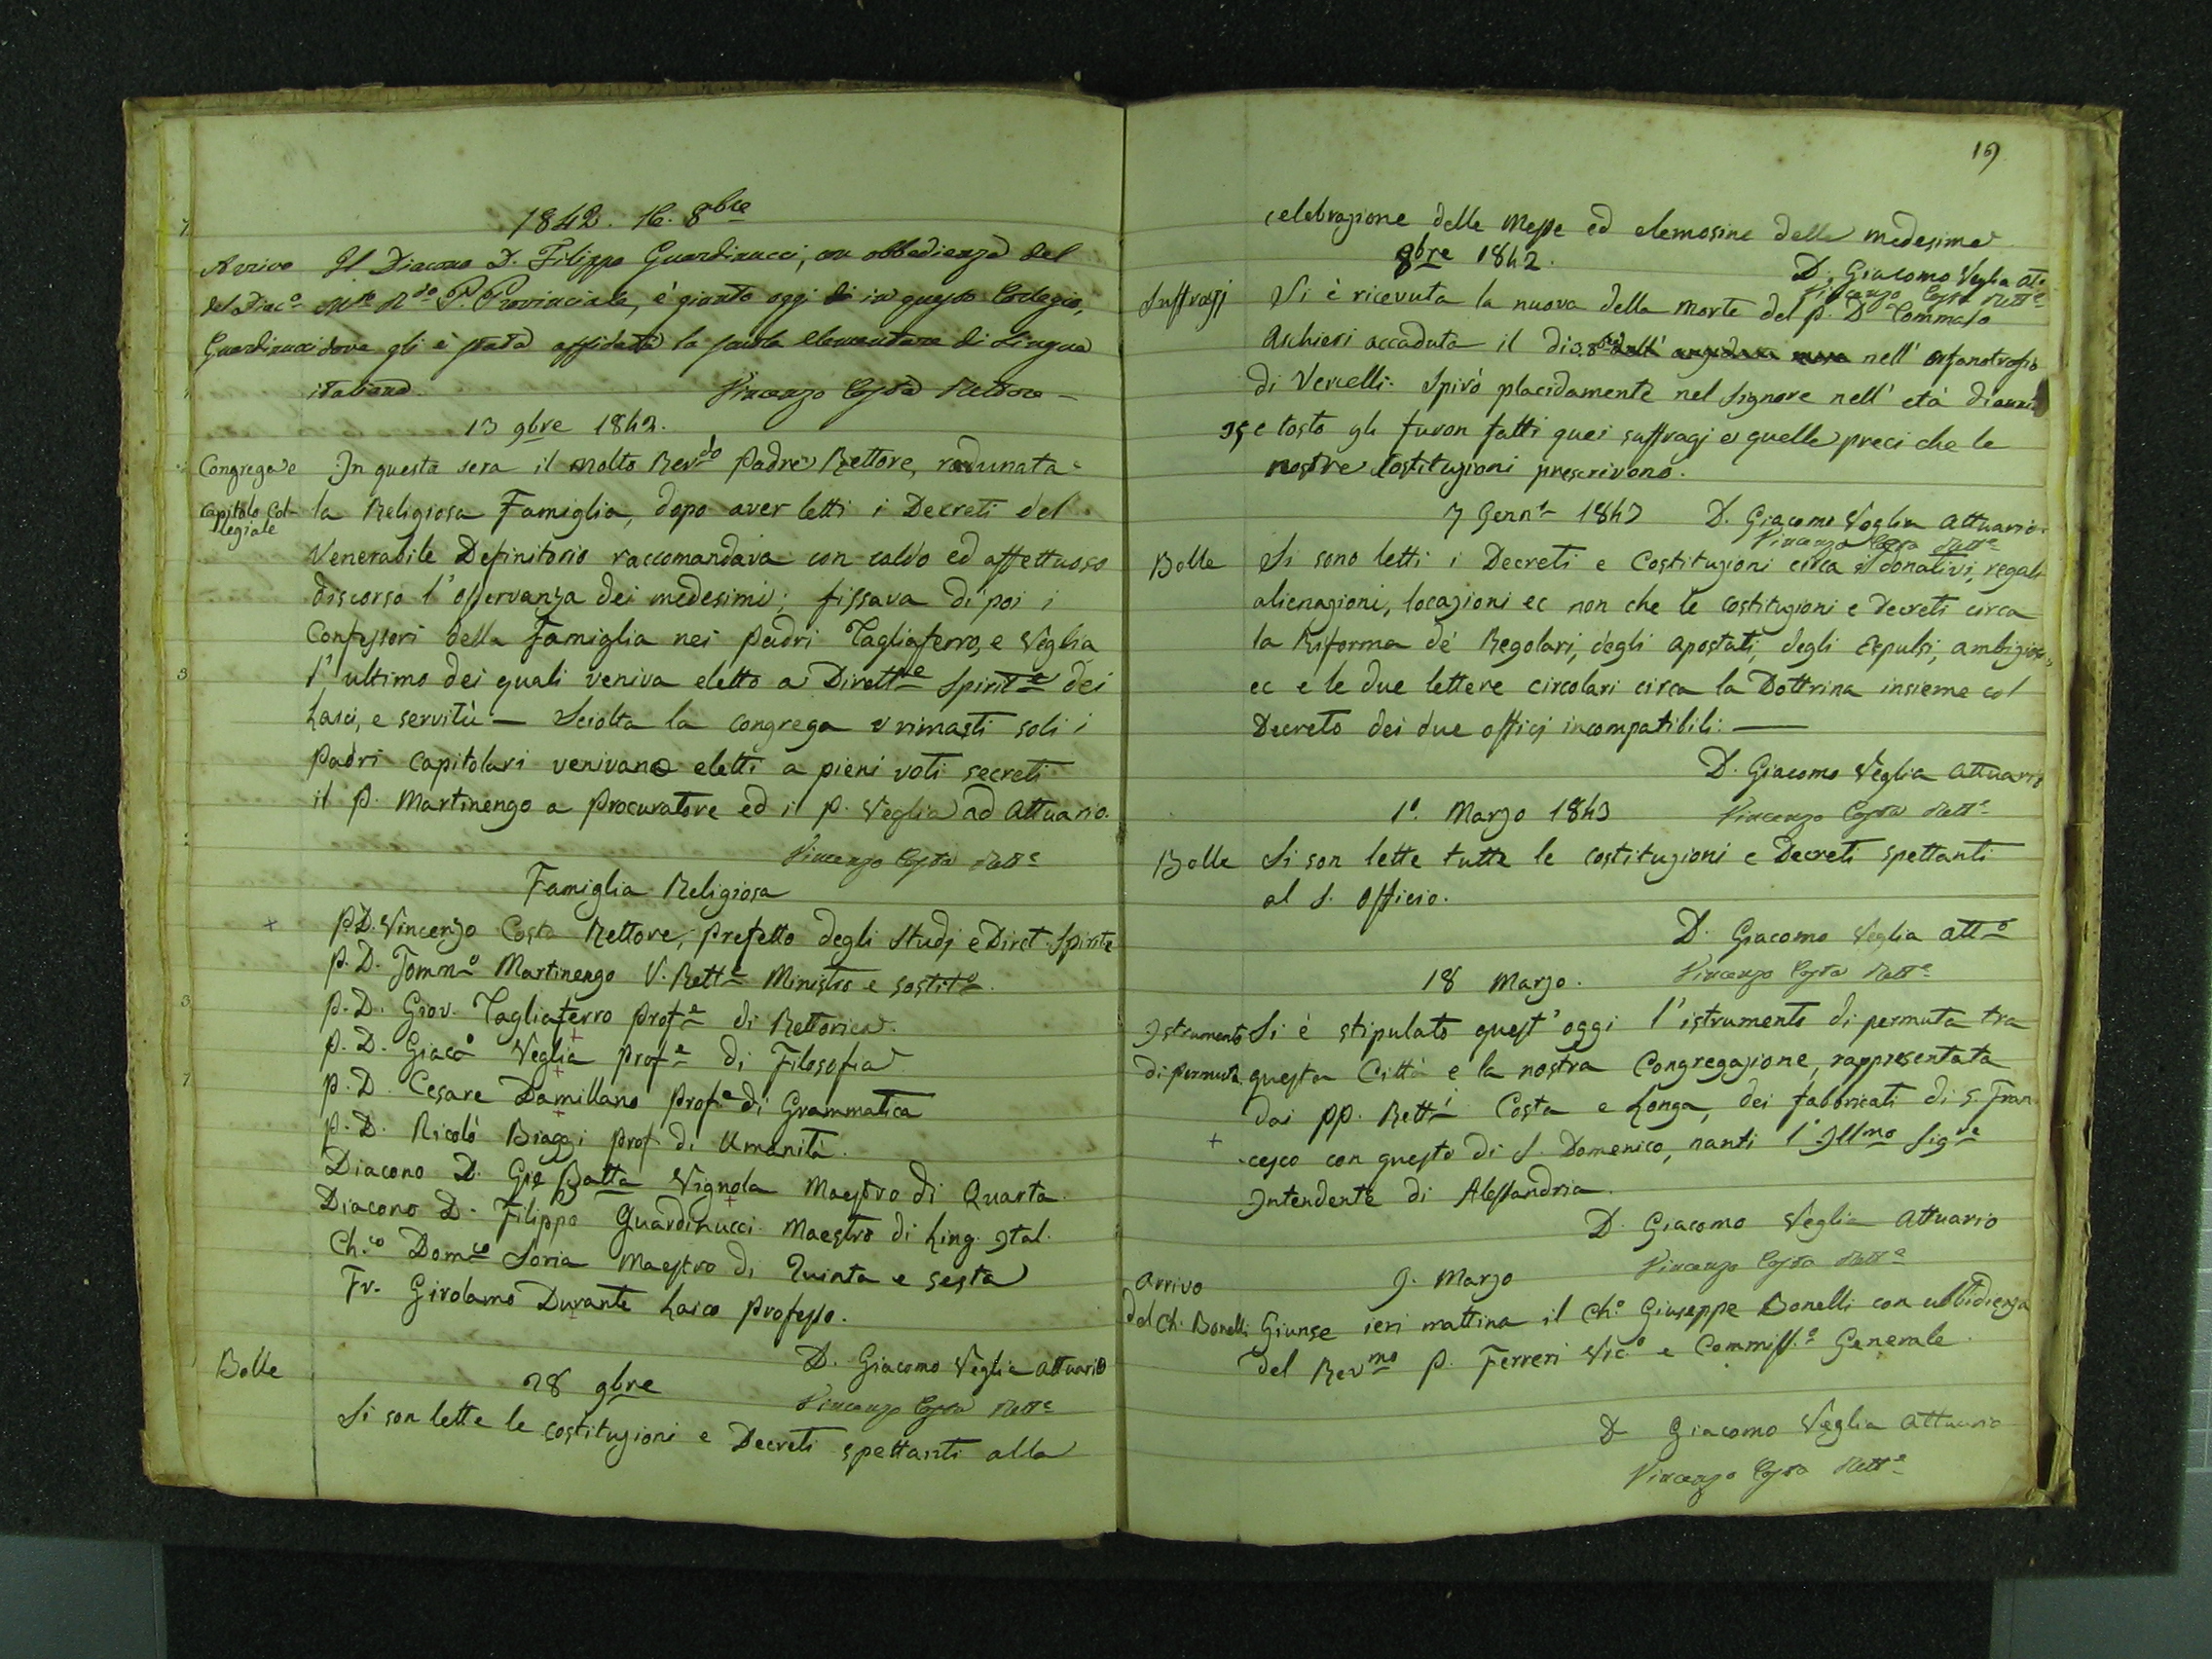 1842. 16. 8bre
Arrivo Il Diacono D. Filippo Guardinucci, con obbedienza del
del Diac.o M.to R.do P. Provinciale, è giunto oggi in questo Collegio,
Guardinucci dove gli è stata affidata la scuola elementare di Lingua
italiana. Vincenzo Costa Rettore
13 9bre 1842.
Congrega e In questa sera il Molto Rev.do Padre Rettore, radunata
Capitolo Col- la Religiosa Famiglia, dopo aver letti i Decreti del
legiale
Venerabile Definitorio raccomandava con caldo ed affettuoso
discorso l'osservanza dei medesimi; fissava di poi i
Confessori della famiglia nei Padri Tagliaferro, e Veglia
l'ultimo dei quali veniva eletto a Dirett.e Spirit.e dei
Laici, e servitù — Sciolta la congrega e rimasti soli i
Padri Capitolari venivano eletti a pieni voti secreti
il P. Martinengo a Procuratore ed il P. Veglia ad Attuario.
Vincenzo Costa Rett.e
Famiglia Religiosa
P.D. Vincenzo Costa Rettore, prefetto degli Studj e Diret. Spirite
P. D. Tomm.o Martinengo V. Rett.e Ministro e sostit.o
P. D. Giov. Tagliaferro Prof.e di Rettorica.
P. D. Giac.o Veglia Prof.e di Filosofia
P. D. Cesare Damillano Prof.e di Grammatica
P. D. Nicolò Biaggi prof di Umanità.
Diacono D. Gio Batta Vignola Maestro di Quarta
Diacono D. Filippo Guardinucci Maestro di Ling. Ital.
Ch.co Dom.co Soria Maestro di Quinta e sesta
Fr. Girolamo Durante Laico Professo.
D. Giacomo Veglia Attuario
Bolle 28 9bre Vincenzo Costa Rett.e
Si son lette le costituzioni e Decreti spettanti alla
19
celebrazione delle Messe ed elemosine delle medesime
D. Giacomo Veglia At.o
9bre 1842. Vincenzo Costa Rett.e
Suffragj Si è ricevuta la nuova della morte del P. D. Tommaso
Aschieri accaduta il di 3. 8bre nell' orfanotrofio
di Vercelli. Spirò placidamente nel Signore nell' età di anni
75 e tosto gli furon fatti quei suffragj e quelle preci che le
nostre Costituzioni prescrivono.
7 Genn.o 1843 D. Giacomo Veglia Attuario
Vincenzo Costa Rett.e
Bolle Si sono letti i Decreti e Costituzioni circa i donativi, regali
alienazioni, locazioni ec non che le costituzioni e Decreti circa
la Riforma de' Regolari, degli apostati, degli Espulsi,
ec e le due lettere circolari circa la Dottrina insieme col
Decreto dei due officj incompatibili: —
D. Giacomo Veglia Attuario
1.o Marzo 1843 Vincenzo Costa Rett.e
Bolle Si son lette tutte le costituzioni e Decreti spettanti
al S. Officio.
D. Giacomo Veglia att.o
18 Marzo. Vincenzo Costa Rett.e
Istrumento Si è stipulato quest' oggi l'istrumento di permuta tra
di permuta. questa Città e la nostra Congregazione, rappresentata
dai PP. Rett.i Costa e Longa, dei fabbricati di S. Fran
cesco con questo di S. Domenico, nanti l'Ill.mo Sig.e
Intendente di Alessandria.
D. Giacomo Veglia Attuario
Vincenzo Costa Rett.e
Arrivo 9. Marzo
del Ch. Bonelli Giunse ieri mattina il Ch.o Giuseppe Bonelli con ubbidienza
del Rev.mo P. Ferreri Vic.o e Commiss.o Generale.
D Giacomo Veglia Attuario
Vincenzo Costa Rett.e